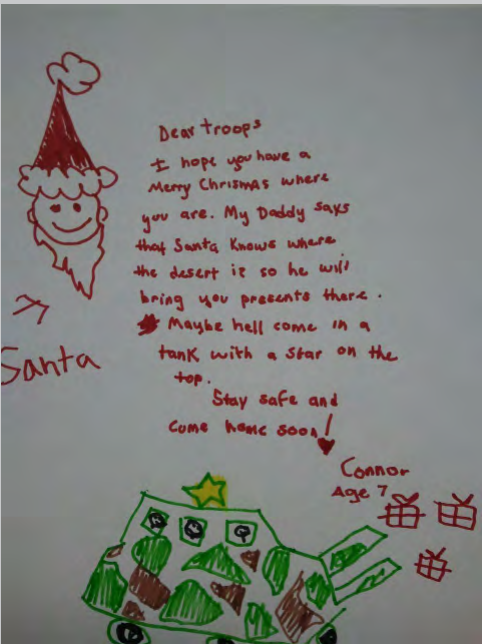 Dear troops
I hope you have a
Merry Chrismas where
you are. My Daddy says
that Santa Knows where
the desert is so he will
bring you presents there.
Maybe hell come in a
tank with a star on the
top.
Stay safe and
come home soon!
Connor
Age 7
Santa